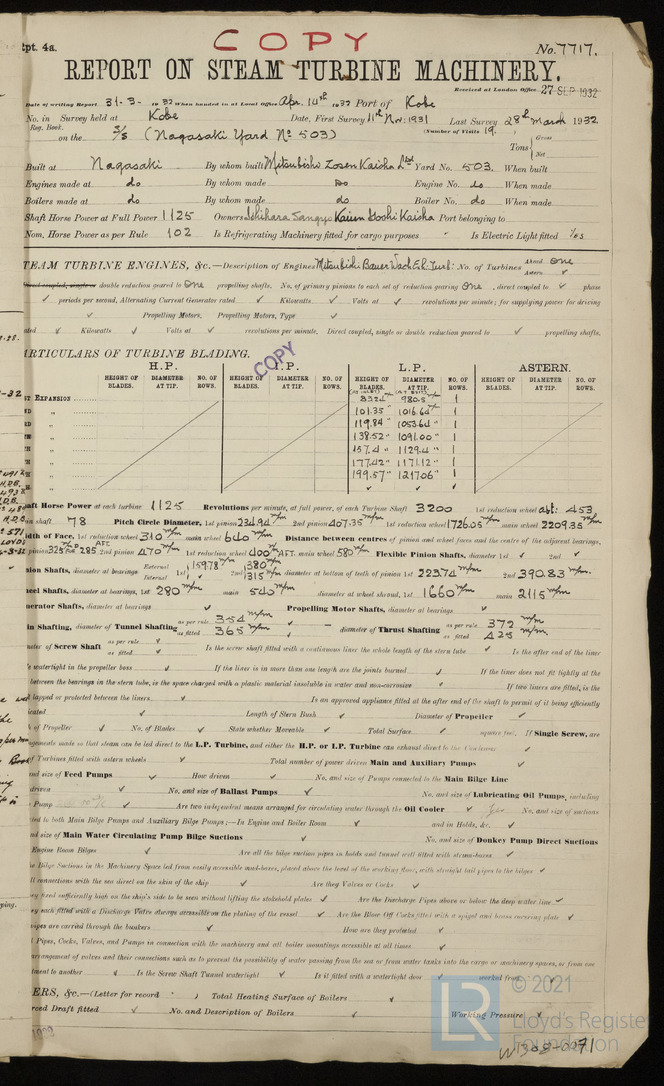 Rpt. 4a.
COPY
No. 7717.
REPORT ON STEAM TURBINE MACHINERY.
Received at London Office 27 SEP 1932
Date of writing Report 31-3-1932 When handed in at Local Office Apr. 14th 1932 Port of Kobe
No. in Survey held at Kobe Date, First Survey 11th Nov: 1931 Last Survey 28th March 1932
Reg. Book. (Number of Visits 19.
on the S/S (Nagasaki Yard No 503) Tons Gross Net
Built at Nagasaki By whom built Mitsubishi Zosen Kaisha Ltd Yard No. 503. When built
Engines made at do By whom made Do Engine No. do When made
Boilers made at do By whom made do Boiler No. do When made
Shaft Horse Power at Full Power 1125 Owners Ishihara Sangyo Kaiun Goshi Kaisha Port belonging to
Nom. Horse Power as per Rule 102 Is Refrigerating Machinery fitted for cargo purposes Is Electric Light fitted Yes
TEAM TURBINE ENGINES, &c.—Description of Engines Mitsubishi Bauer Wach Ex. Turb: No. of Turbines Ahead one Astern ✓
double reduction geared to One propelling shafts. No. of primary pinions to each set of reduction gearing One, direct coupled to ✓ phase
periods per second, Alternating Current Generator rated ✓ Kilowatts ✓ Volts at ✓ revolutions per minute; for supplying power for driving
Propelling Motors, Propelling Motors, Type ✓
ated ✓ Kilowatts ✓ Volts at ✓ revolutions per minute. Direct coupled, single or double reduction geared to ✓ propelling shafts.
ARTICULARS OF TURBINE BLADING.
COPY
H.P. I.P. L.P. ASTERN.
HEIGHT OF BLADES. DIAMETER AT TIP. NO. OF ROWS. HEIGHT OF BLADES. DIAMETER AT TIP. NO. OF ROWS. HEIGHT OF BLADES. DIAMETER AT TIP. NO. OF ROWS. HEIGHT OF BLADES. DIAMETER AT TIP. NO. OF ROWS.
ST EXPANSION 980.5 m/m 1
101.35 " 1016.64 " 1
119.84 " 1053.64 " 1
138.52 " 1091.00 " 1
157.4 " 1129.4 " 1
177.42 " 1171.12 " 1
199.57 " 1217.06 " 1
haft Horse Power at each turbine 1125 Revolutions per minute, at full power, of each Turbine Shaft 3200 1st reduction wheel abt: 453
in shaft 78 Pitch Circle Diameter, 1st pinion 234.94 m/m 2nd pinion 407.35 m/m 1st reduction wheel 1726.05 m/m main wheel 2209.35 m/m
idth of Face, 1st reduction wheel 310 m/m main wheel 640 m/m Distance between centres of pinion and wheel faces and the centre of the adjacent bearings,
pinion 2nd pinion 470 m/m 1st reduction wheel 400 m/m AFT. main wheel 580 m/m Flexible Pinion Shafts, diameter 1st ✓ 2nd ✓
nion Shafts, diameter at bearings External Internal 1st 159.78 m/m 2nd 380 m/m 315 m/m diameter at bottom of teeth of pinion 1st 223.74 m/m 2nd 390.83 m/m
heel Shafts, diameter at bearings, 1st 280 m/m main 540 m/m diameter at wheel shroud, 1st 1660 m/m main 2115 m/m
nerator Shafts, diameter at bearings ✓ Propelling Motor Shafts, diameter at bearings ✓
in Shafting, diameter of Tunnel Shafting as per rule 354 m/m as fitted 365 m/m diameter of Thrust Shafting as per rule 372 m/m as fitted 425 m/m
meter of Screw Shaft as per rule ✓ as fitted ✓ Is the screw shaft fitted with a continuous liner the whole length of the stern tube ✓ Is the after end of the liner
e watertight in the propeller boss ✓ If the liner is in more than one length are the joints burned ✓ If the liner does not fit tightly at the
between the bearings in the stern tube, is the space charged with a plastic material insoluble in water and non-corrosive ✓ If two liners are fitted, is the
lapped or protected between the liners ✓ Is an approved appliance fitted at the after end of the shaft to permit of it being efficiently
icated ✓ Length of Stern Bush ✓ Diameter of Propeller ✓
h of Propeller ✓ No. of Blades ✓ State whether Moveable ✓ Total Surface ✓ square feet. If Single Screw, are
ngements made so that steam can be led direct to the L.P. Turbine, and either the H.P. or I.P. Turbine can exhaust direct to the Condenser ✓
f Turbines fitted with astern wheels ✓ Total number of power driven Main and Auxiliary Pumps ✓
nd size of Feed Pumps ✓ How driven ✓ No. and size of Pumps connected to the Main Bilge Line
driven ✓ No. and size of Ballast Pumps ✓ No. and size of Lubricating Oil Pumps, including
Pump Are two independent means arranged for circulating water through the Oil Cooler ✓ No. and size of suctions
ted to both Main Bilge Pumps and Auxiliary Bilge Pumps;—In Engine and Boiler Room ✓ and in Holds, &c. ✓
nd size of Main Water Circulating Pump Bilge Suctions ✓ No. and size of Donkey Pump Direct Suctions
Engine Room Bilges ✓ Are all the bilge suction pipes in holds and tunnel well fitted with strum-boxes ✓
he Bilge Suctions in the Machinery Space led from easily accessible mud-boxes, placed above the level of the working floor, with straight tail pipes to the bilges ✓
ll connections with the sea direct on the skin of the ship ✓ Are they Valves or Cocks ✓
ey fixed sufficiently high on the ship's side to be seen without lifting the stokehold plates ✓ Are the Discharge Pipes above or below the deep water line ✓
ey each fitted with a Discharge Valve always accessible on the plating of the vessel ✓ Are the Blow Off Cocks fitted with a spigot and brass covering plate ✓
pipes are carried through the bunkers ✓ How are they protected ✓
l Pipes, Cocks, Valves, and Pumps in connection with the machinery and all boiler mountings accessible at all times ✓
arrangement of valves and their connections such as to prevent the possibility of water passing from the sea or from water tanks into the cargo or machinery spaces, or from one
tment to another ✓ Is the Screw Shaft Tunnel watertight ✓ Is it fitted with a watertight door ✓ worked from ✓
ERS, &c.—(Letter for record ) Total Heating Surface of Boilers ✓
rced Draft fitted ✓ No. and Description of Boilers ✓ Working Pressure ✓
LR
© 2021
Lloyd's Register
Foundation
W308-0071